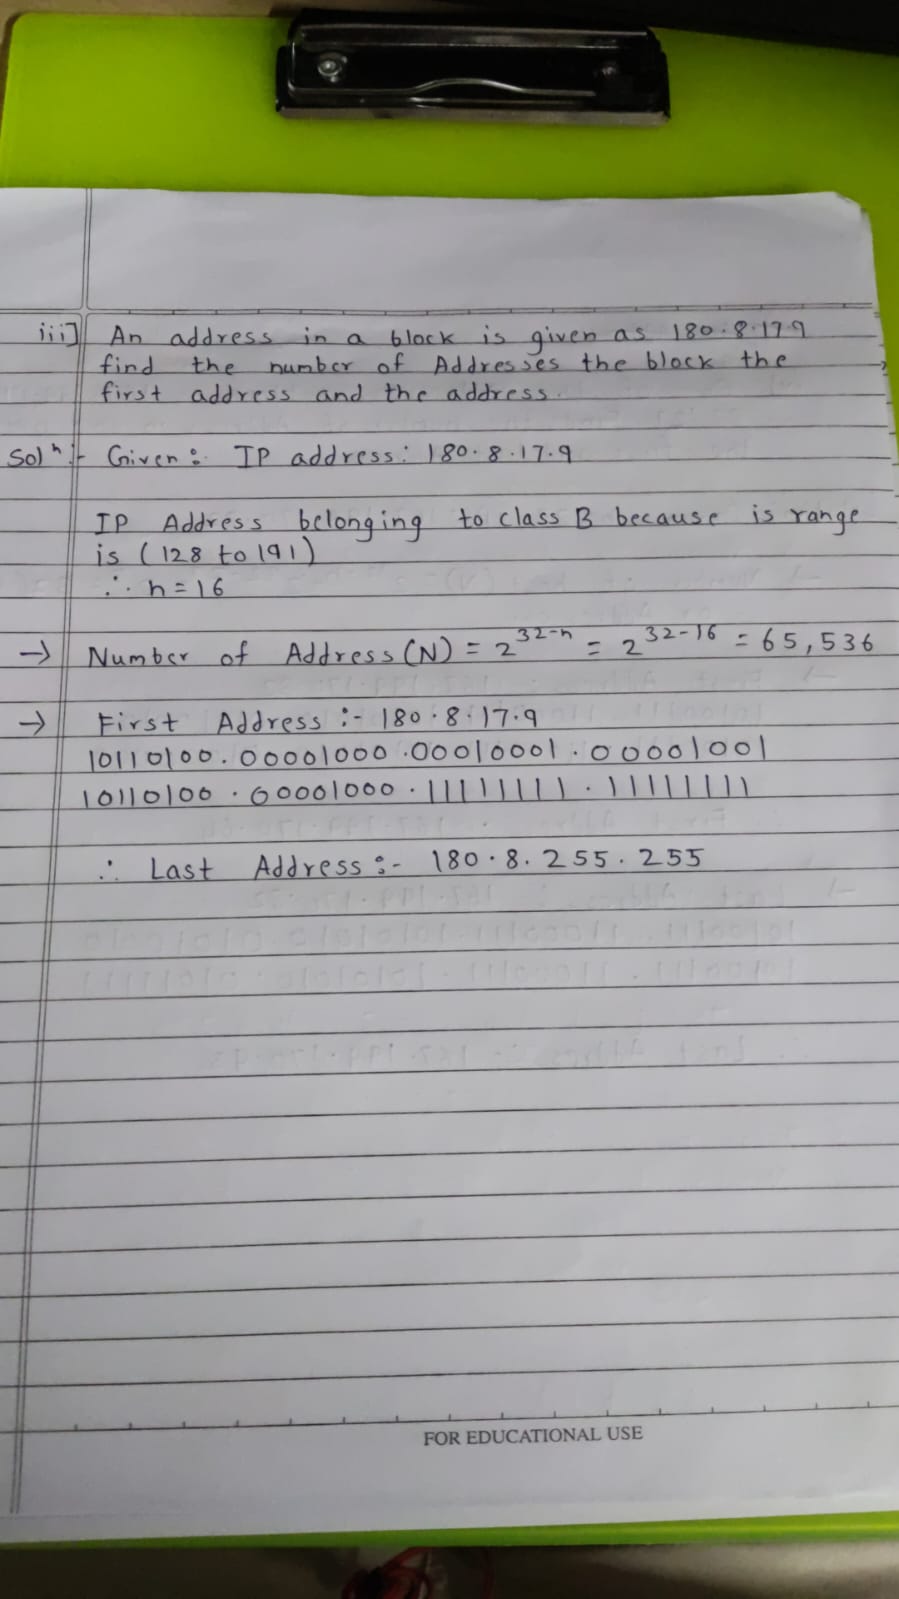 iii] An address in a block is given as 180.8.17.9
find the number of Addresses the block the
first address and the address.
Solⁿ :- Given : IP address: 180.8.17.9
IP Address belonging to class B because is range
is (128 to 191)
∴ n = 16
→ Number of Address (N) = 2^32-n = 2^32-16 = 65,536
→ First Address :- 180.8.17.9
10110100.00001000.00010001.00001001
10110100.00001000.11111111.11111111
∴ Last Address :- 180.8.255.255
FOR EDUCATIONAL USE